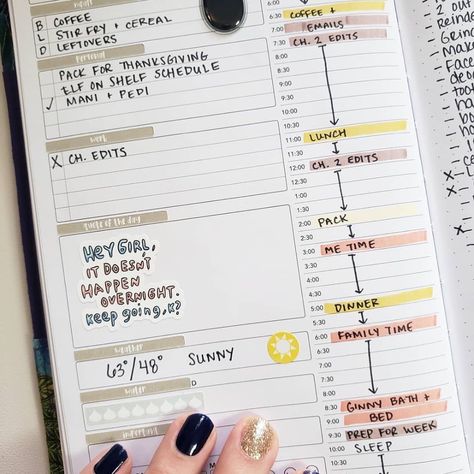 meals
B COFFEE
L STIR FRY + CEREAL
D LEFTOVERS
personal
PACK FOR THANKSGIVING
ELF ON SHELF SCHEDULE
✓ MANI + PEDI
work
X CH. EDITS
quote of the day
HEY GIRL,
IT DOESN'T
HAPPEN
OVERNIGHT.
keep going, K?
weather
63°/48° SUNNY
water
D
important
6:30 COFFEE +
7:00 EMAILS
7:30 CH. 2 EDITS
8:00
8:30
9:00
9:30
10:00
10:30
11:00 LUNCH
11:30
12:00 CH. 2 EDITS
12:30
1:00
1:30
2:00 PACK
2:30
3:00 ME TIME
3:30
4:00
4:30
5:00 DINNER
5:30
6:00 FAMILY TIME
6:30
8:30 GINNY BATH +
9:00 BED
9:30 PREP FOR WEEK
10:00 SLEEP
10:30